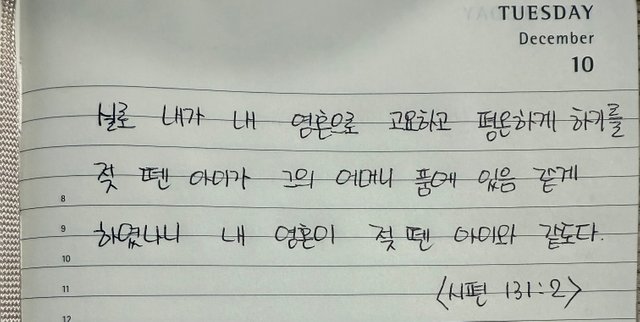 TUESDAY
December
10
실로 내가 내 영혼으로 고요하고 평온하게 하기를
젖 뗀 아이가 그의 어머니 품에 있음 같게
8
하였나니 내 영혼이 젖 뗀 아이와 같도다.
9
10
11
<시편 131:2>
12